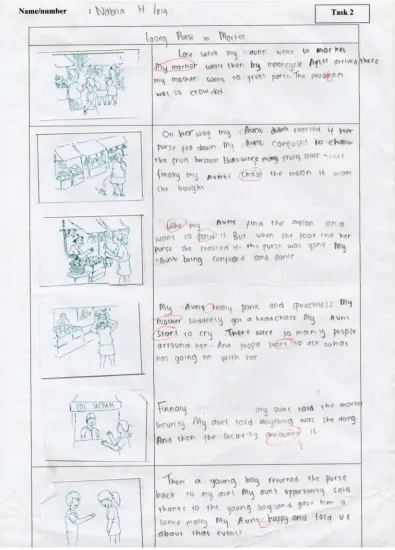 Name/number : Nabila H / 24
Task 2
Losing Purse in Market
Last week my aunt went to market
My mother went then by motorcycle After arrived there
my mother went to fruit parts. The situation
was so crowded
On her way my Aunt didnt realized if her
purse fell down. My Aunt confused to choose
the fruit because there were many fruits
finally my Aunt chose the melon
she bought
Who my Aunt find the melon and
want to paid it But when she took the her
purse she realised if the purse was gone. My
Aunt being confused and panic.
My Aunt really panic and speechless My
mother suddenly got a headchace My Aunt
start to cry There were so many people
arround her. And people start to ask what
has going on with her.
POS SATPAM
Finnaly my aunt told the market
security. My aunt told anything was she doing
And then the security announce it
Then a young boy returned the purse
back to my aunt My aunt opportunity said
thanks to the young boy and gave him a
some money My Aunt happy and told us
about that event!